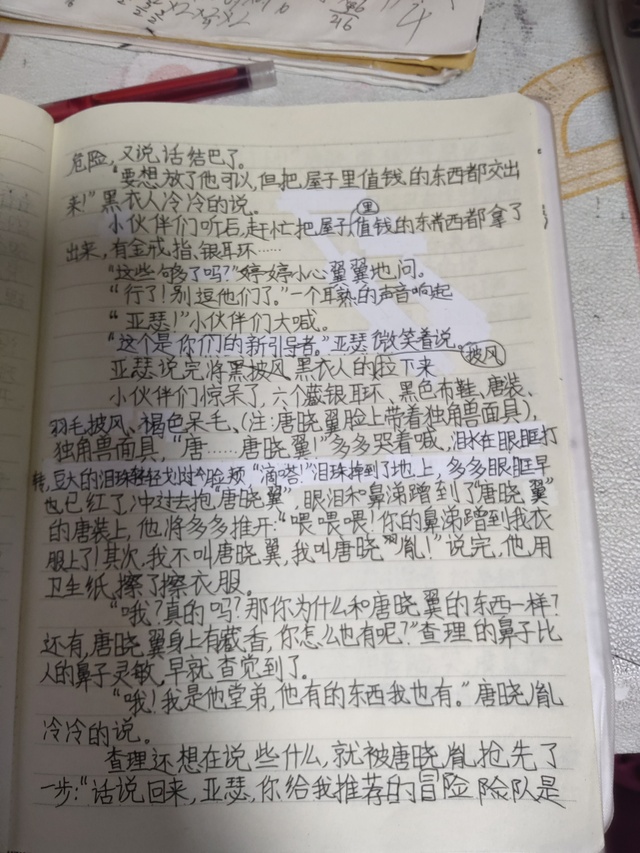 危险,又说话结巴了。
“要想放了他可以,但把屋子里值钱的东西都交出
来!”黑衣人冷冷的说。
小伙伴们听后,赶忙把屋子里值钱的东西都拿了
出来,有金戒指、银耳环……
“这些够了吗?”婷婷小心翼翼地问。
“行了!别逗他们了。”一个耳熟的声音响起
“亚瑟!”小伙伴们大喊。
“这个是你们的新引导者。”亚瑟微笑着说。
亚瑟说完,将黑披风黑衣人的披风拉下来
小伙伴们惊呆了,六个藏银耳环、黑色布鞋、唐装、
羽毛披风、褐色呆毛、(注:唐晓翼脸上带着独角兽面具),
独角兽面具,“唐……唐晓翼!”多多哭着喊,泪水在眼眶打
转,豆大的泪珠轻轻划过脸颊,“滴嗒!”泪珠掉到了地上,多多眼眶早
也已红了,冲过去抱“唐晓翼”,眼泪和鼻涕蹭到了“唐晓翼”
的唐装上,他将多多推开:“喂喂喂!你的鼻涕蹭到我衣
服上了!其次,我不叫唐晓翼,我叫唐晓胤!”说完,他用
卫生纸擦了擦衣服。
“哦?真的吗?那你为什么和唐晓翼的东西一样?
还有,唐晓翼身上有藏香,你怎么也有呢?”查理的鼻子比
人的鼻子灵敏,早就查觉到了。
“哦!我是他堂弟,他有的东西我也有。”唐晓胤
冷冷的说。
查理还想在说些什么,就被唐晓胤抢先了
一步:“话说回来,亚瑟,你给我推荐的冒险险队是